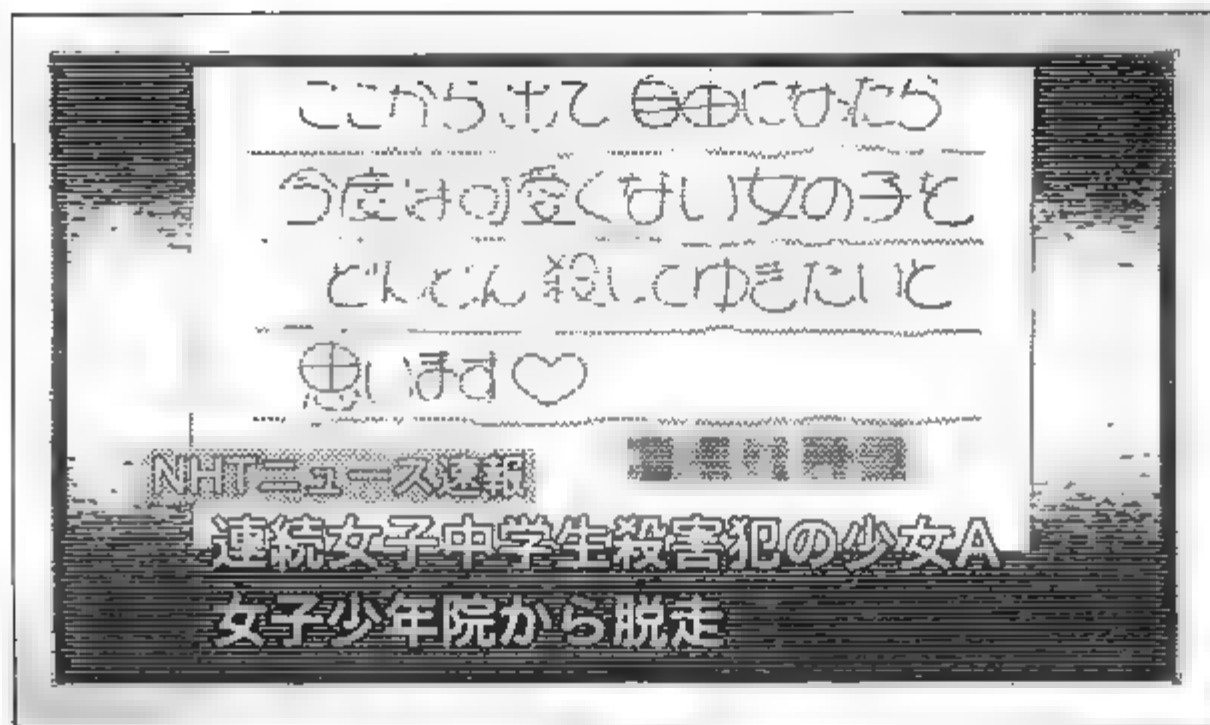 ここから出て自由になったら
今度は可愛くない女の子を
どんどん殺してゆきたいと
思います♡
NHTニュース速報
連続女子中学生殺害犯の少女A
女子少年院から脱走